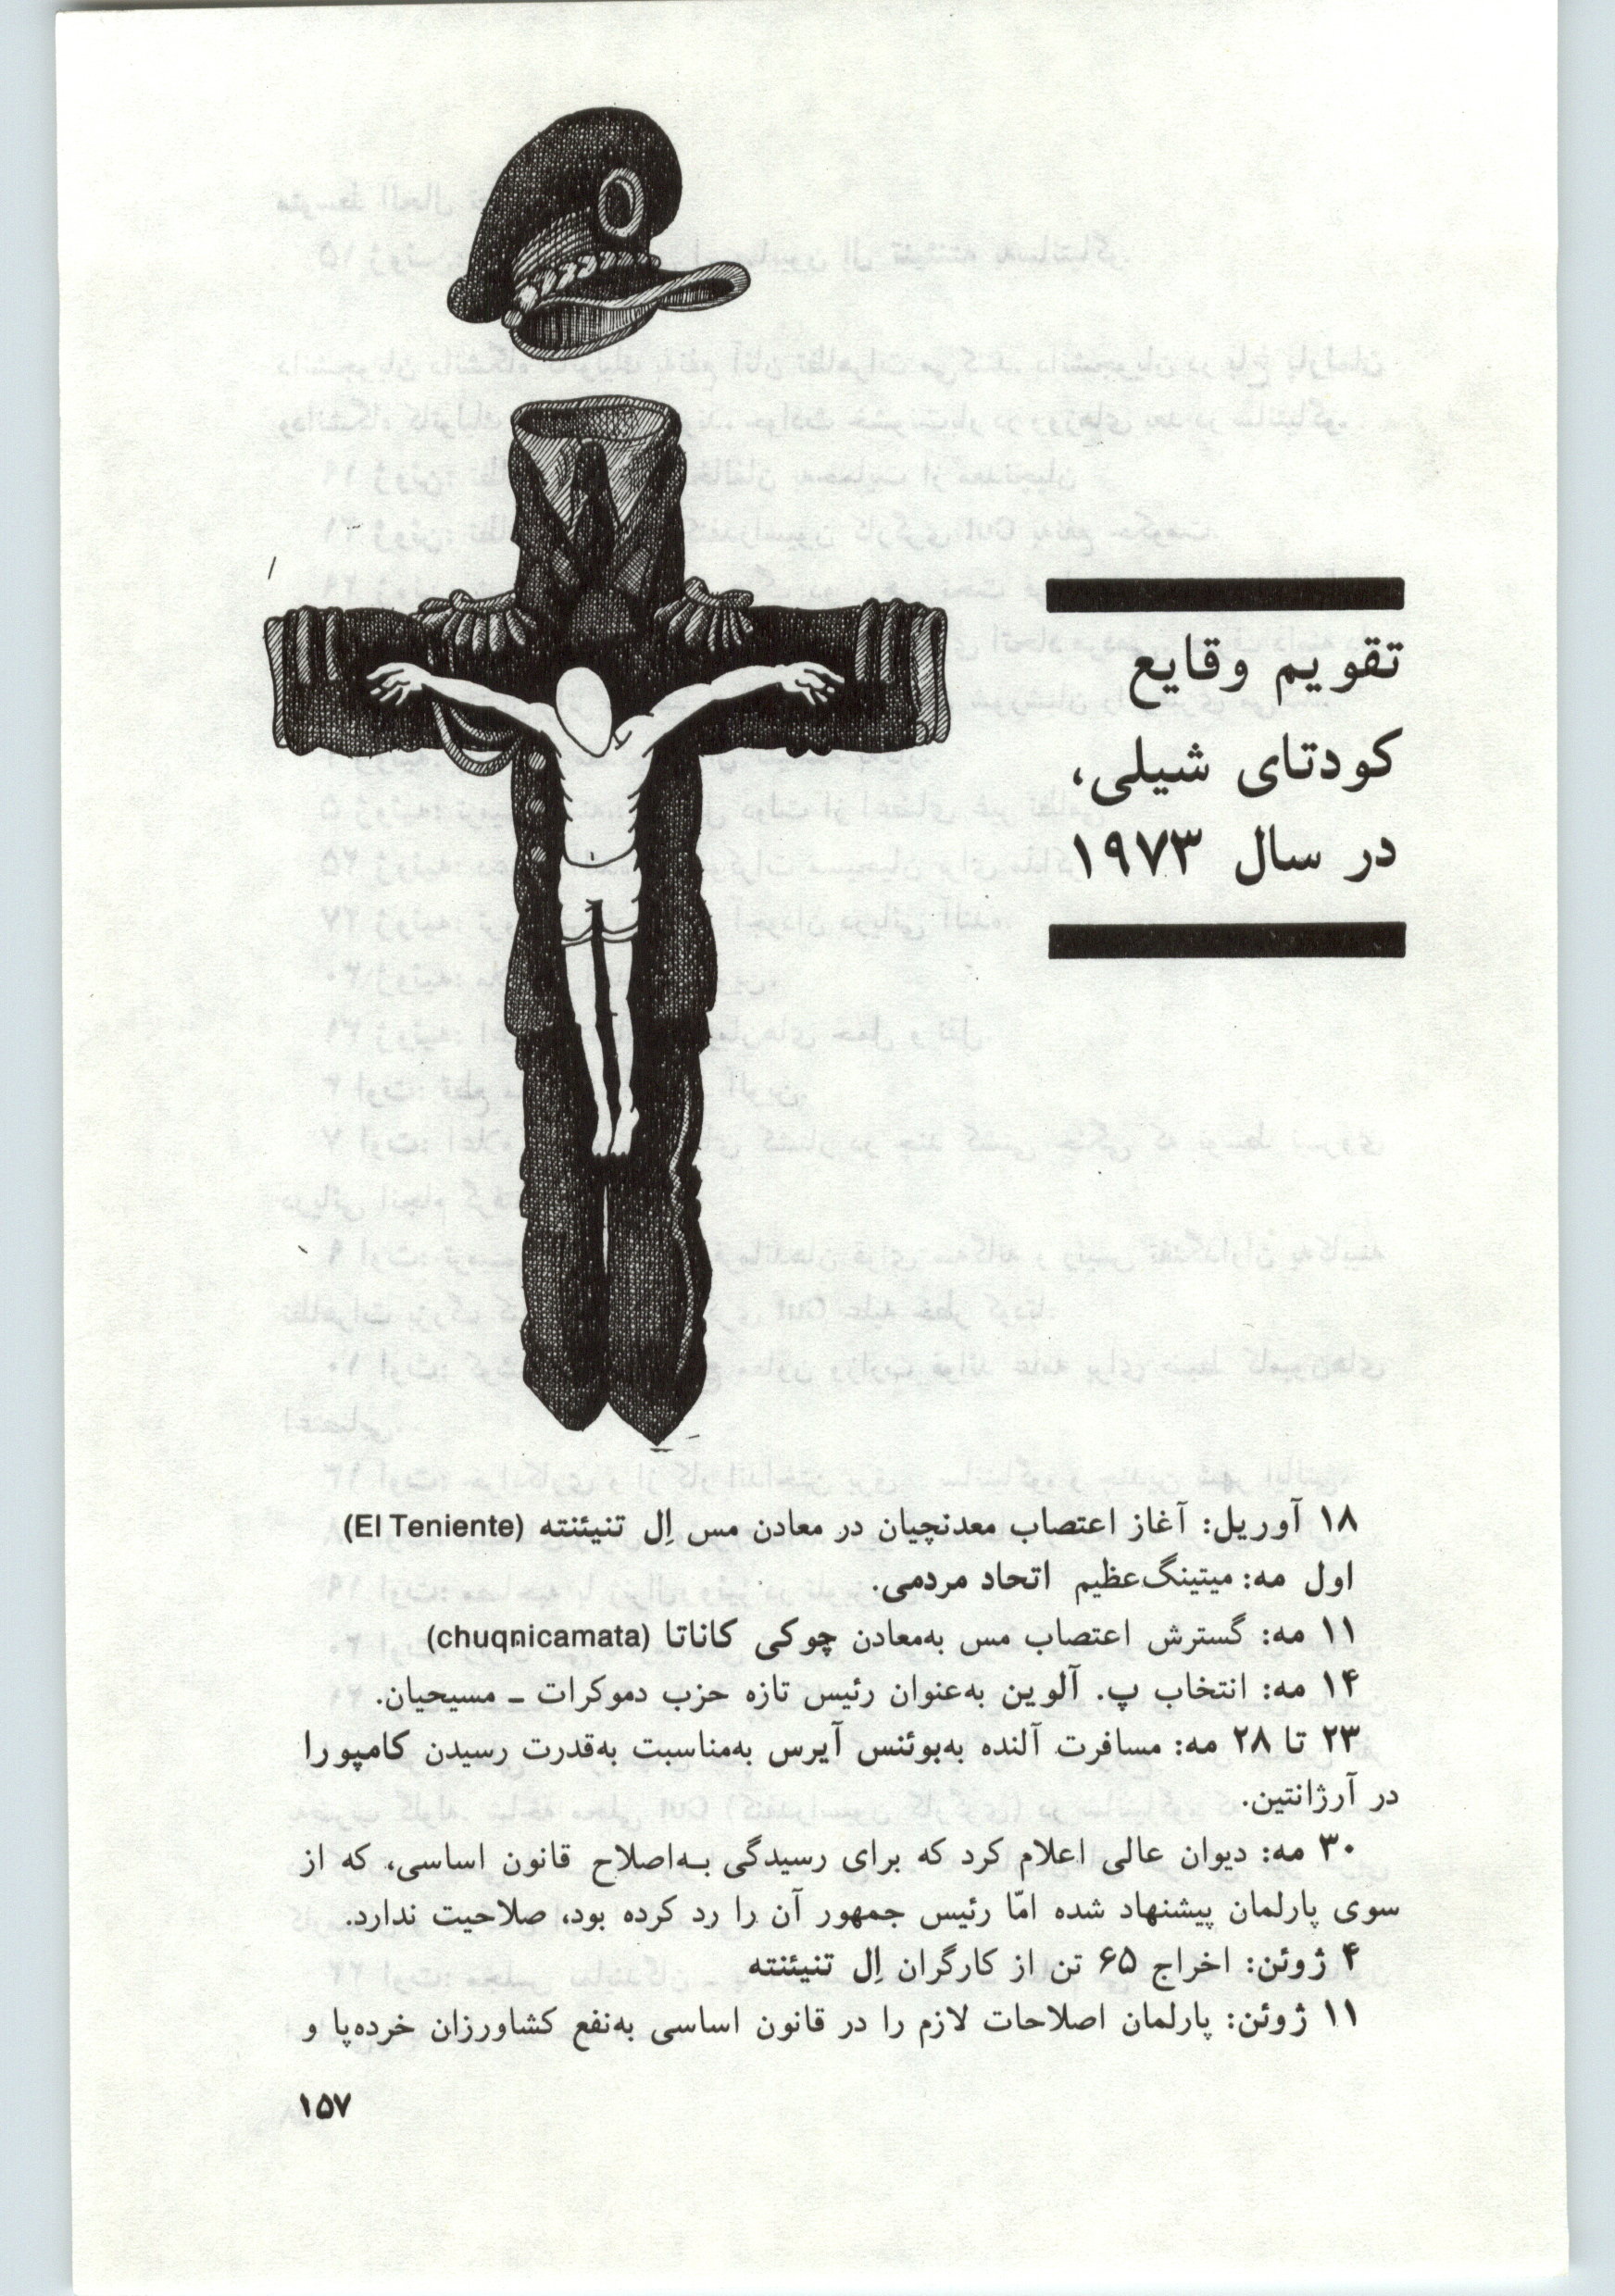 تقویم وقایع
کودتای شیلی،
در سال ۱۹۷۳
۱۸ آوریل: آغاز اعتصاب معدنچیان در معادن مس اِل تنیئنته (El Teniente)
اول مه: میتینگ‌عظیم اتحاد مردمی.
۱۱ مه: گسترش اعتصاب مس به‌معادن چوکی کاناتا (chuqnicamata)
۱۴ مه: انتخاب پ. آلوین به‌عنوان رئیس تازه حزب دموکرات ـ مسیحیان.
۲۳ تا ۲۸ مه: مسافرت آلنده به‌بوئنس آیرس به‌مناسبت به‌قدرت رسیدن کامپورا
در آرژانتین.
۳۰ مه: دیوان عالی اعلام کرد که برای رسیدگی به‌اصلاح قانون اساسی، که از
سوی پارلمان پیشنهاد شده امّا رئیس جمهور آن را رد کرده بود، صلاحیت ندارد.
۴ ژوئن: اخراج ۶۵ تن از کارگران اِل تنیئنته
۱۱ ژوئن: پارلمان اصلاحات لازم را در قانون اساسی به‌نفع کشاورزان خرده‌پا و
۱۵۷